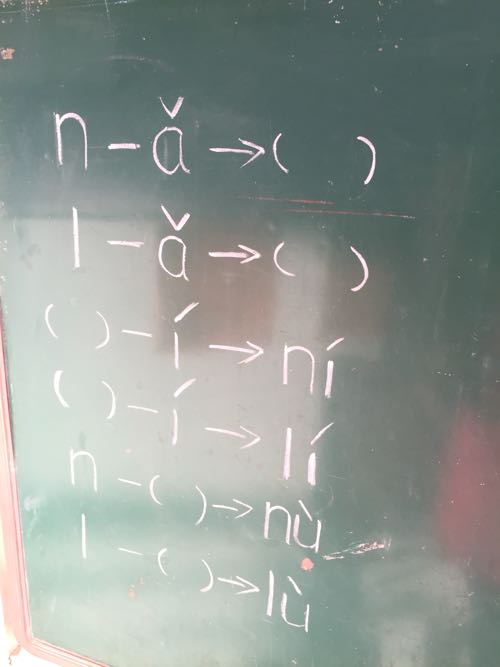 n - ǎ → ( )
l - ǎ → ( )
( ) - í → ní
( ) - í → lí
n - ( ) → nù
l - ( ) → lù